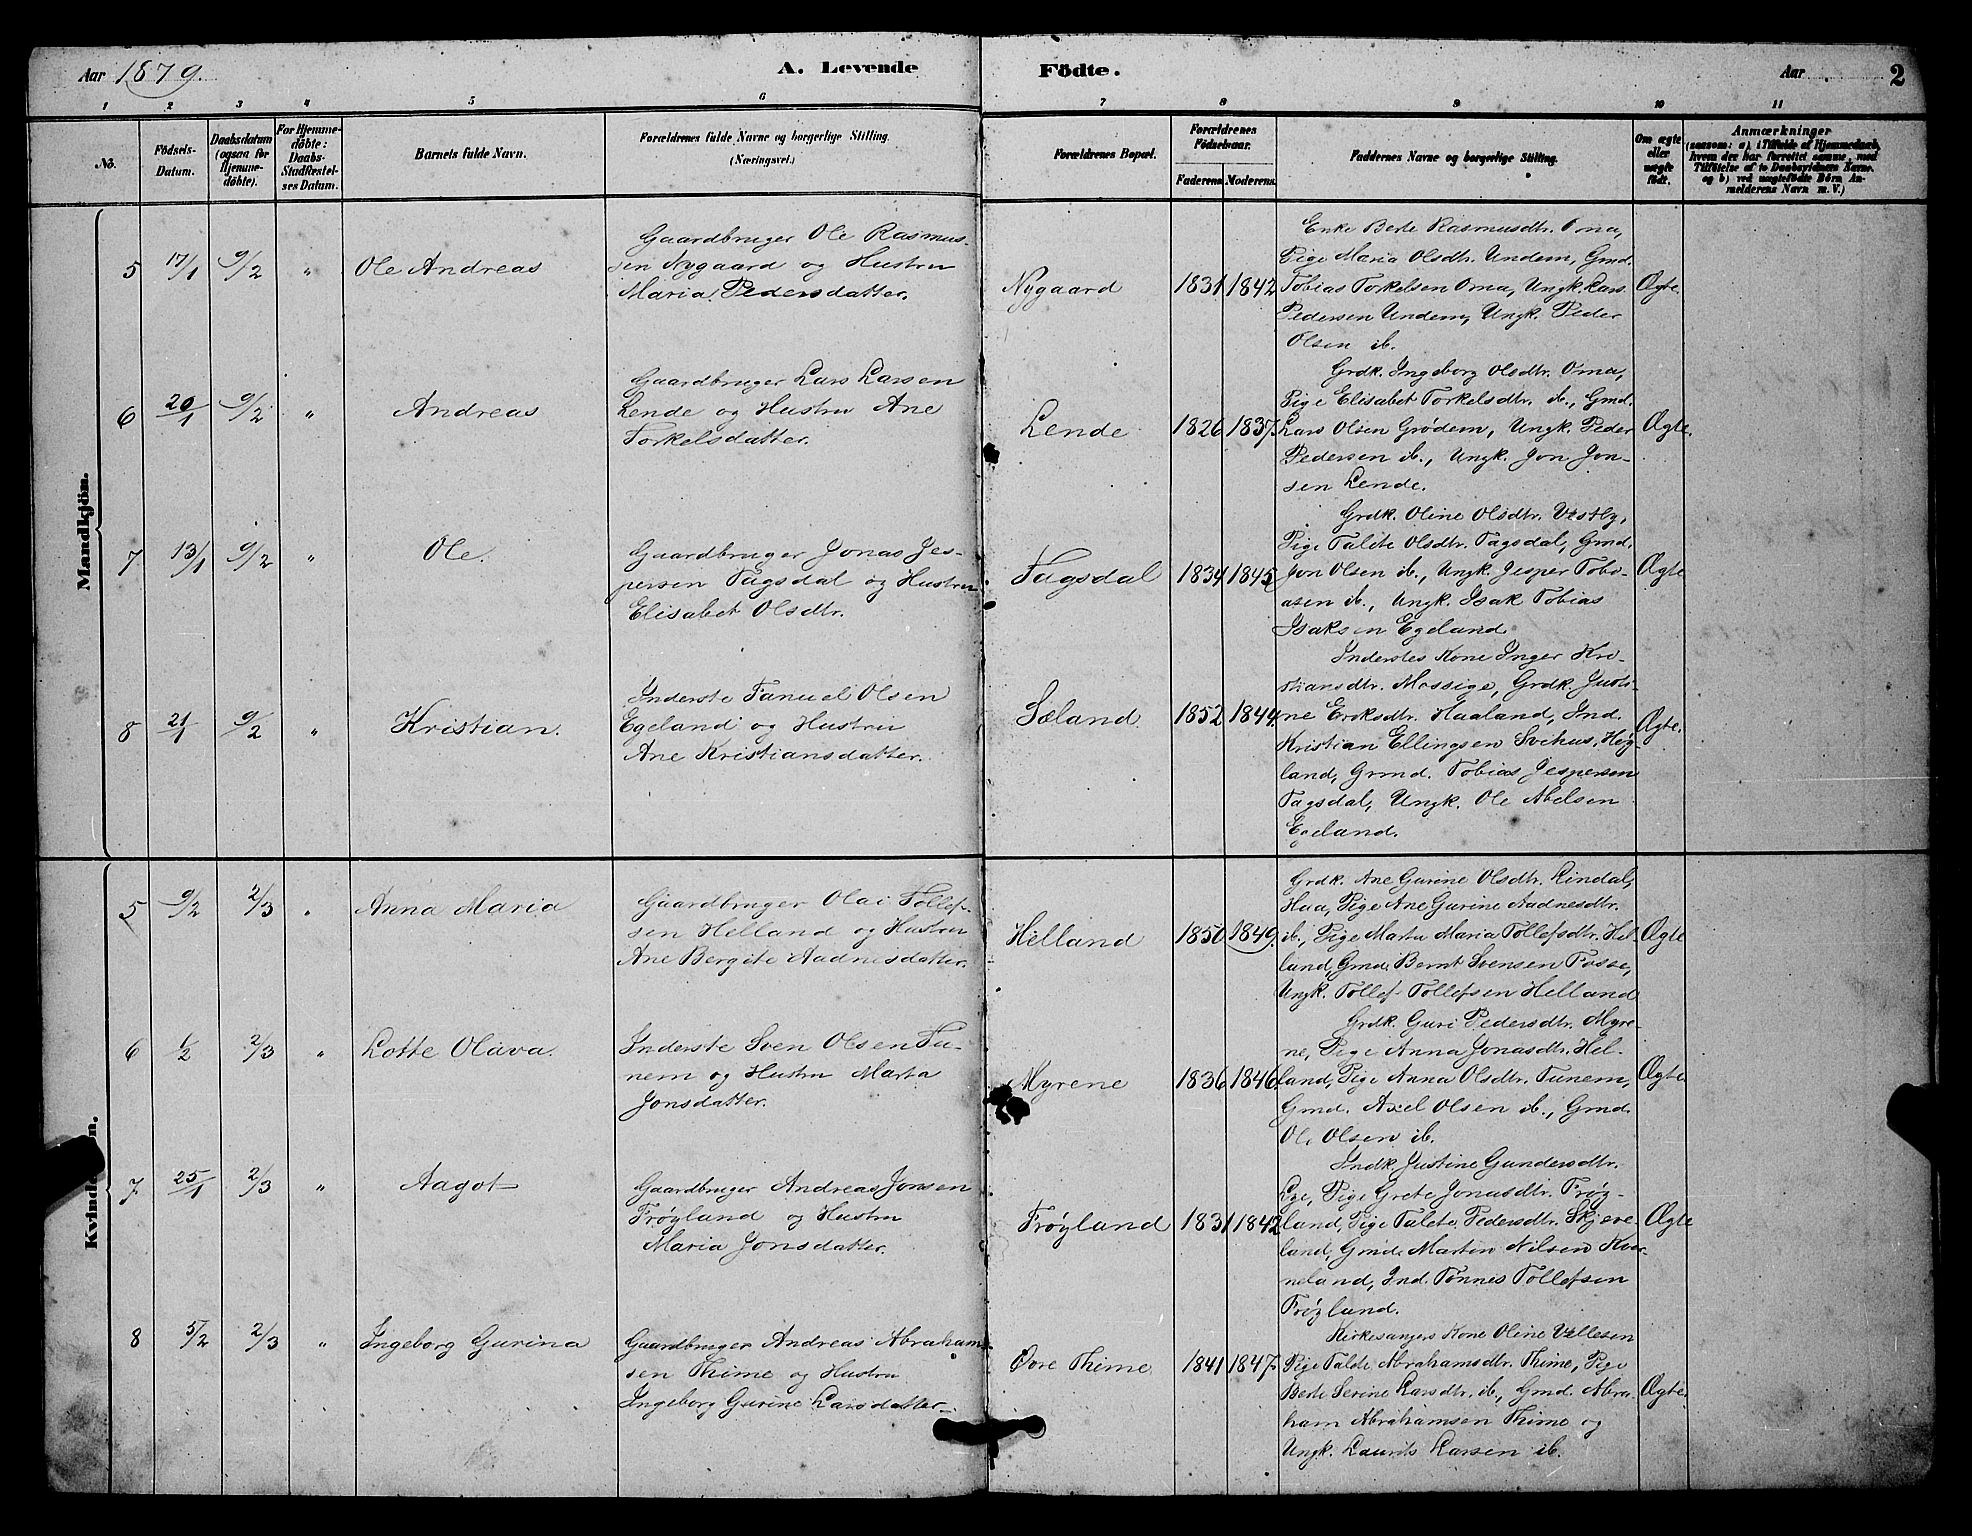 Aar 1879.
A. Levende Födte.
Aar
2
1 2 3 4 5 6 7 8 9 10 11
No.
Födsels-
Datum.
Daabsdatum
(ogsaa for
Hjemme-
döbte).
For Hjemme-
döbte:
Daabs-
Stadfæstel-
ses Datum.
Barnets fulde Navn.
Forældrenes fulde Navne og borgerlige Stilling.
(Næringsvei.)
Forældrenes Bopæl.
Forældrenes
Födselsaar.
Faderens. Moderens.
Faddernes Navne og borgerlige Stilling.
Om ægte
eller
uægte
födt.
Anmærkninger
(saasom: a) i Tilfælde af Hjemmedaab,
hvem der har forrettet samme, med
Tilföielse af to Daabsvidners Navne.
og b) ved uægtefödte Börn An-
melderens Navn m. V.)
Mandkjön.
5 17/1 9/2 " Ole Andreas
Gaardbruger Ole Rasmus-
sen Nygaard og Hustru
Maria Pedersdatter.
Nygaard 1831 1842
Enke Berte Rasmusdtr. Orna,
Pige Maria Olsdtr. Undem, Gmd.
Tobias Torkelsen Orna, Ungk. Lars
Pedersen Undem, Ungk. Peder
Olsen ib.
Ægte.
6 20/1 9/2 " Andreas
Gaardbruger Lars Larsen
Lende og Hustru Ane
Torkelsdatter.
Lende 1826 1837.
Grdk. Ingeborg Olsdtr. Orna,
Pige Elisabet Torkelsdtr. ib., Gmd.
Lars Olsen Grødem, Ungk. Peder
Pedersen ib., Ungk. Jon Jon-
sen Lende.
Ægte.
7 13/1 9/2 " Ole.
Gaardbruger Jonas Jes-
persen Tagsdal og Hustru
Elisabet Olsdtr.
Tagsdal 1834 1845
Grdk. Oline Olsdtr. Vestly,
Pige Talite Olsdtr. Tagsdal, Gmd.
Jon Olsen ib., Ungk. Jesper Tobi-
asen ib., Ungk. Isak Tobias
Isaksen Egeland
Ægte
8 21/1 9/2 " Kristian.
Inderste Fanuel Olsen
Egeland og Hustru
Ane Kristiansdatter.
Sæland. 1852 1844.
Inderstes Kone Inger Kri-
stiansdtr. Mossige, Grdk Justi-
ne Eriksdtr. Haaland, Ind.
Kristian Ellingsen Svihus, Høg-
land, Grmd. Tobias Jespersen
Tagsdal, Ungk. Ole Abelsen
Egeland.
Ægte.
5 9/2 2/3 " Anna Maria
Gaardbruger Olai Tollef-
sen Helland og Hustru
Ane Bergite Aadnesdatter.
Helland 1850 1849.
Grdk. Ane Gurine Olsdtr. Lindal,
Haa, Pige Ane Gurine Aadnesdtr.
ib., Pige Marta Maria Tollefsdtr. Hel-
land, Gmd. Bernt Svensen Fosse,
Ungk. Tollef Tollefsen Helland
Ægte
6 1/2 2/3 " Lotte Olava.
Inderste Sven Olsen Tu-
nem og Hustru Marta
Jonsdatter.
Myrene 1836 1846.
Grdk. Guri Pedersdtr. Myre-
ne, Pige Anna Jonasdtr. Hel-
land, Pige Anna Olsdtr. Tunem,
Gmd. Axel Olsen ib., Gmd.
Ole Olsen ib.
Ægte.
7 25/1 2/3 " Aagot
Gaardbruger Andreas Jonsen
Frøyland og Hustru
Maria Jonsdatter.
Frøyland 1831 1842
Indk. Justine Gundersdtr.
Lye, Pige Grete Jonasdtr. Frøy-
land, Pige Talete Pedersdtr. Skjeve-
land, Gmd. Martin Nilsen Kver-
neland, Ind. Tønnes Tollefsen
Frøyland.
Ægte
8 5/2 2/3 " Ingeborg Gurina
Gaardbruger Andreas Abraham-
sen Thime og Hustru
Ingeborg Gurine Larsdatter.
Øvre Thime 1841 1847.
Kirkesangers Kone Oline Vællesen
Pige Talete Abrahamsdtr. Thime, Pige
Berte Serine Larsdtr. ib., Gmd. Abra-
ham Abrahamsen Thime og
Ungk. Laurits Larsen ib.
Ægte.